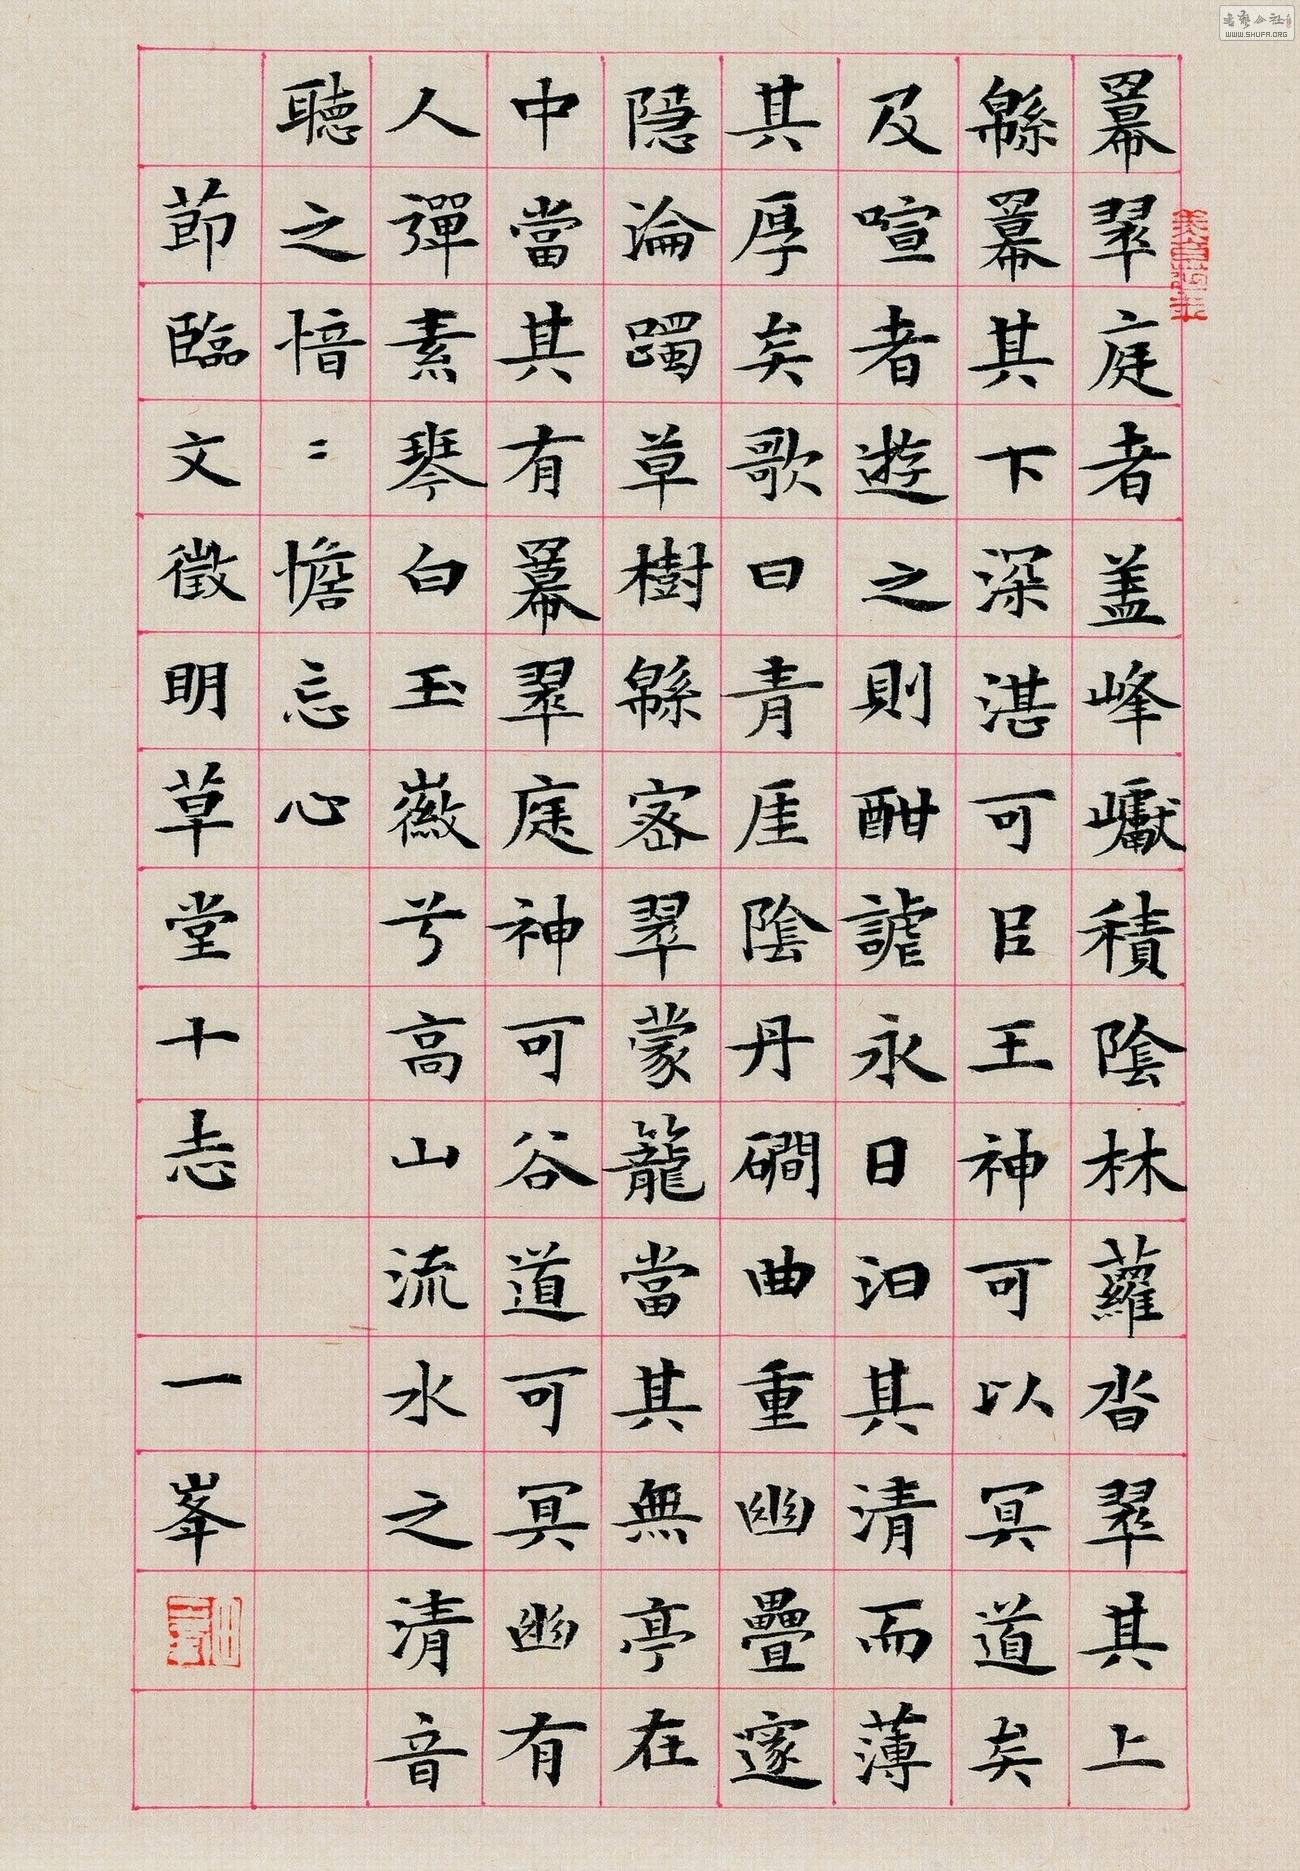 羃翠庭者蓋峰巘積陰林蘿沓翠其上
緜羃其下深湛可以王神可以冥道矣
及喧者遊之則酣謔永日汩其清而薄
其厚矣歌曰青厓陰丹磵曲重幽疊邃
隱淪躅草樹緜密翠蒙籠當其無亭在
中當其有羃翠庭神可谷道可冥幽有
人彈素琴白玉徽兮高山流水之清音
聽之愔=憺忘心
節臨文徵明草堂十志 一峯
書藝公社
WWW.SHUFA.ORG